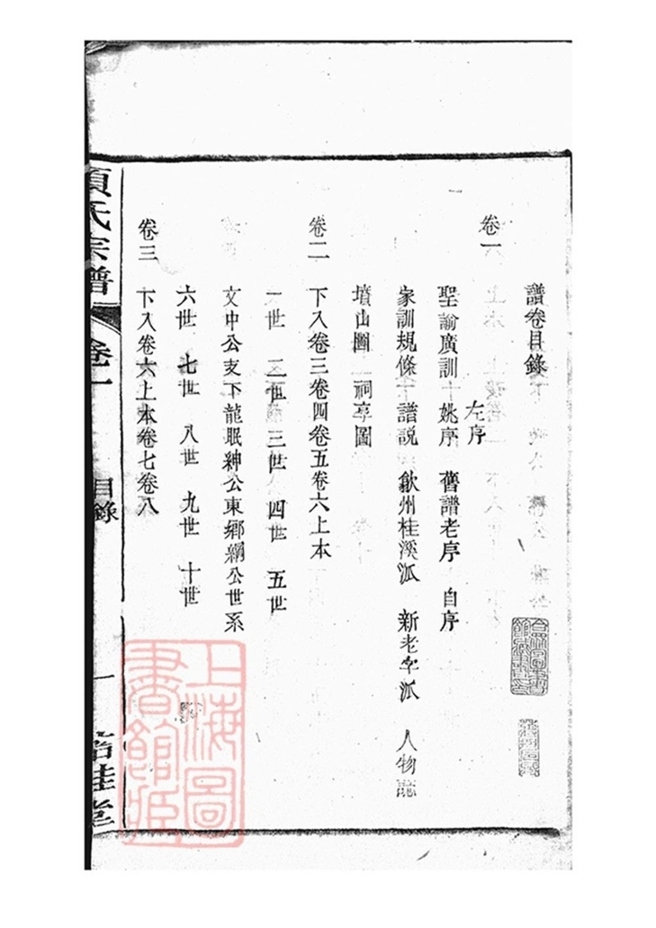 譜卷目錄
卷一
左序
聖諭廣訓 姚序 舊譜老序 自序
家訓規條 譜説 歙州桂溪派 新老字派 人物誌
墳山圖 祠享圖
卷二 下入卷三卷四卷五卷六上本
一世 二世 三世 四世 五世
文中公支下龍眠紳公東鄉綱公世系
六世 七世 八世 九世 十世
卷三 下入卷六上本卷七卷八
項氏宗譜 卷一 目錄 一
上海圖書館